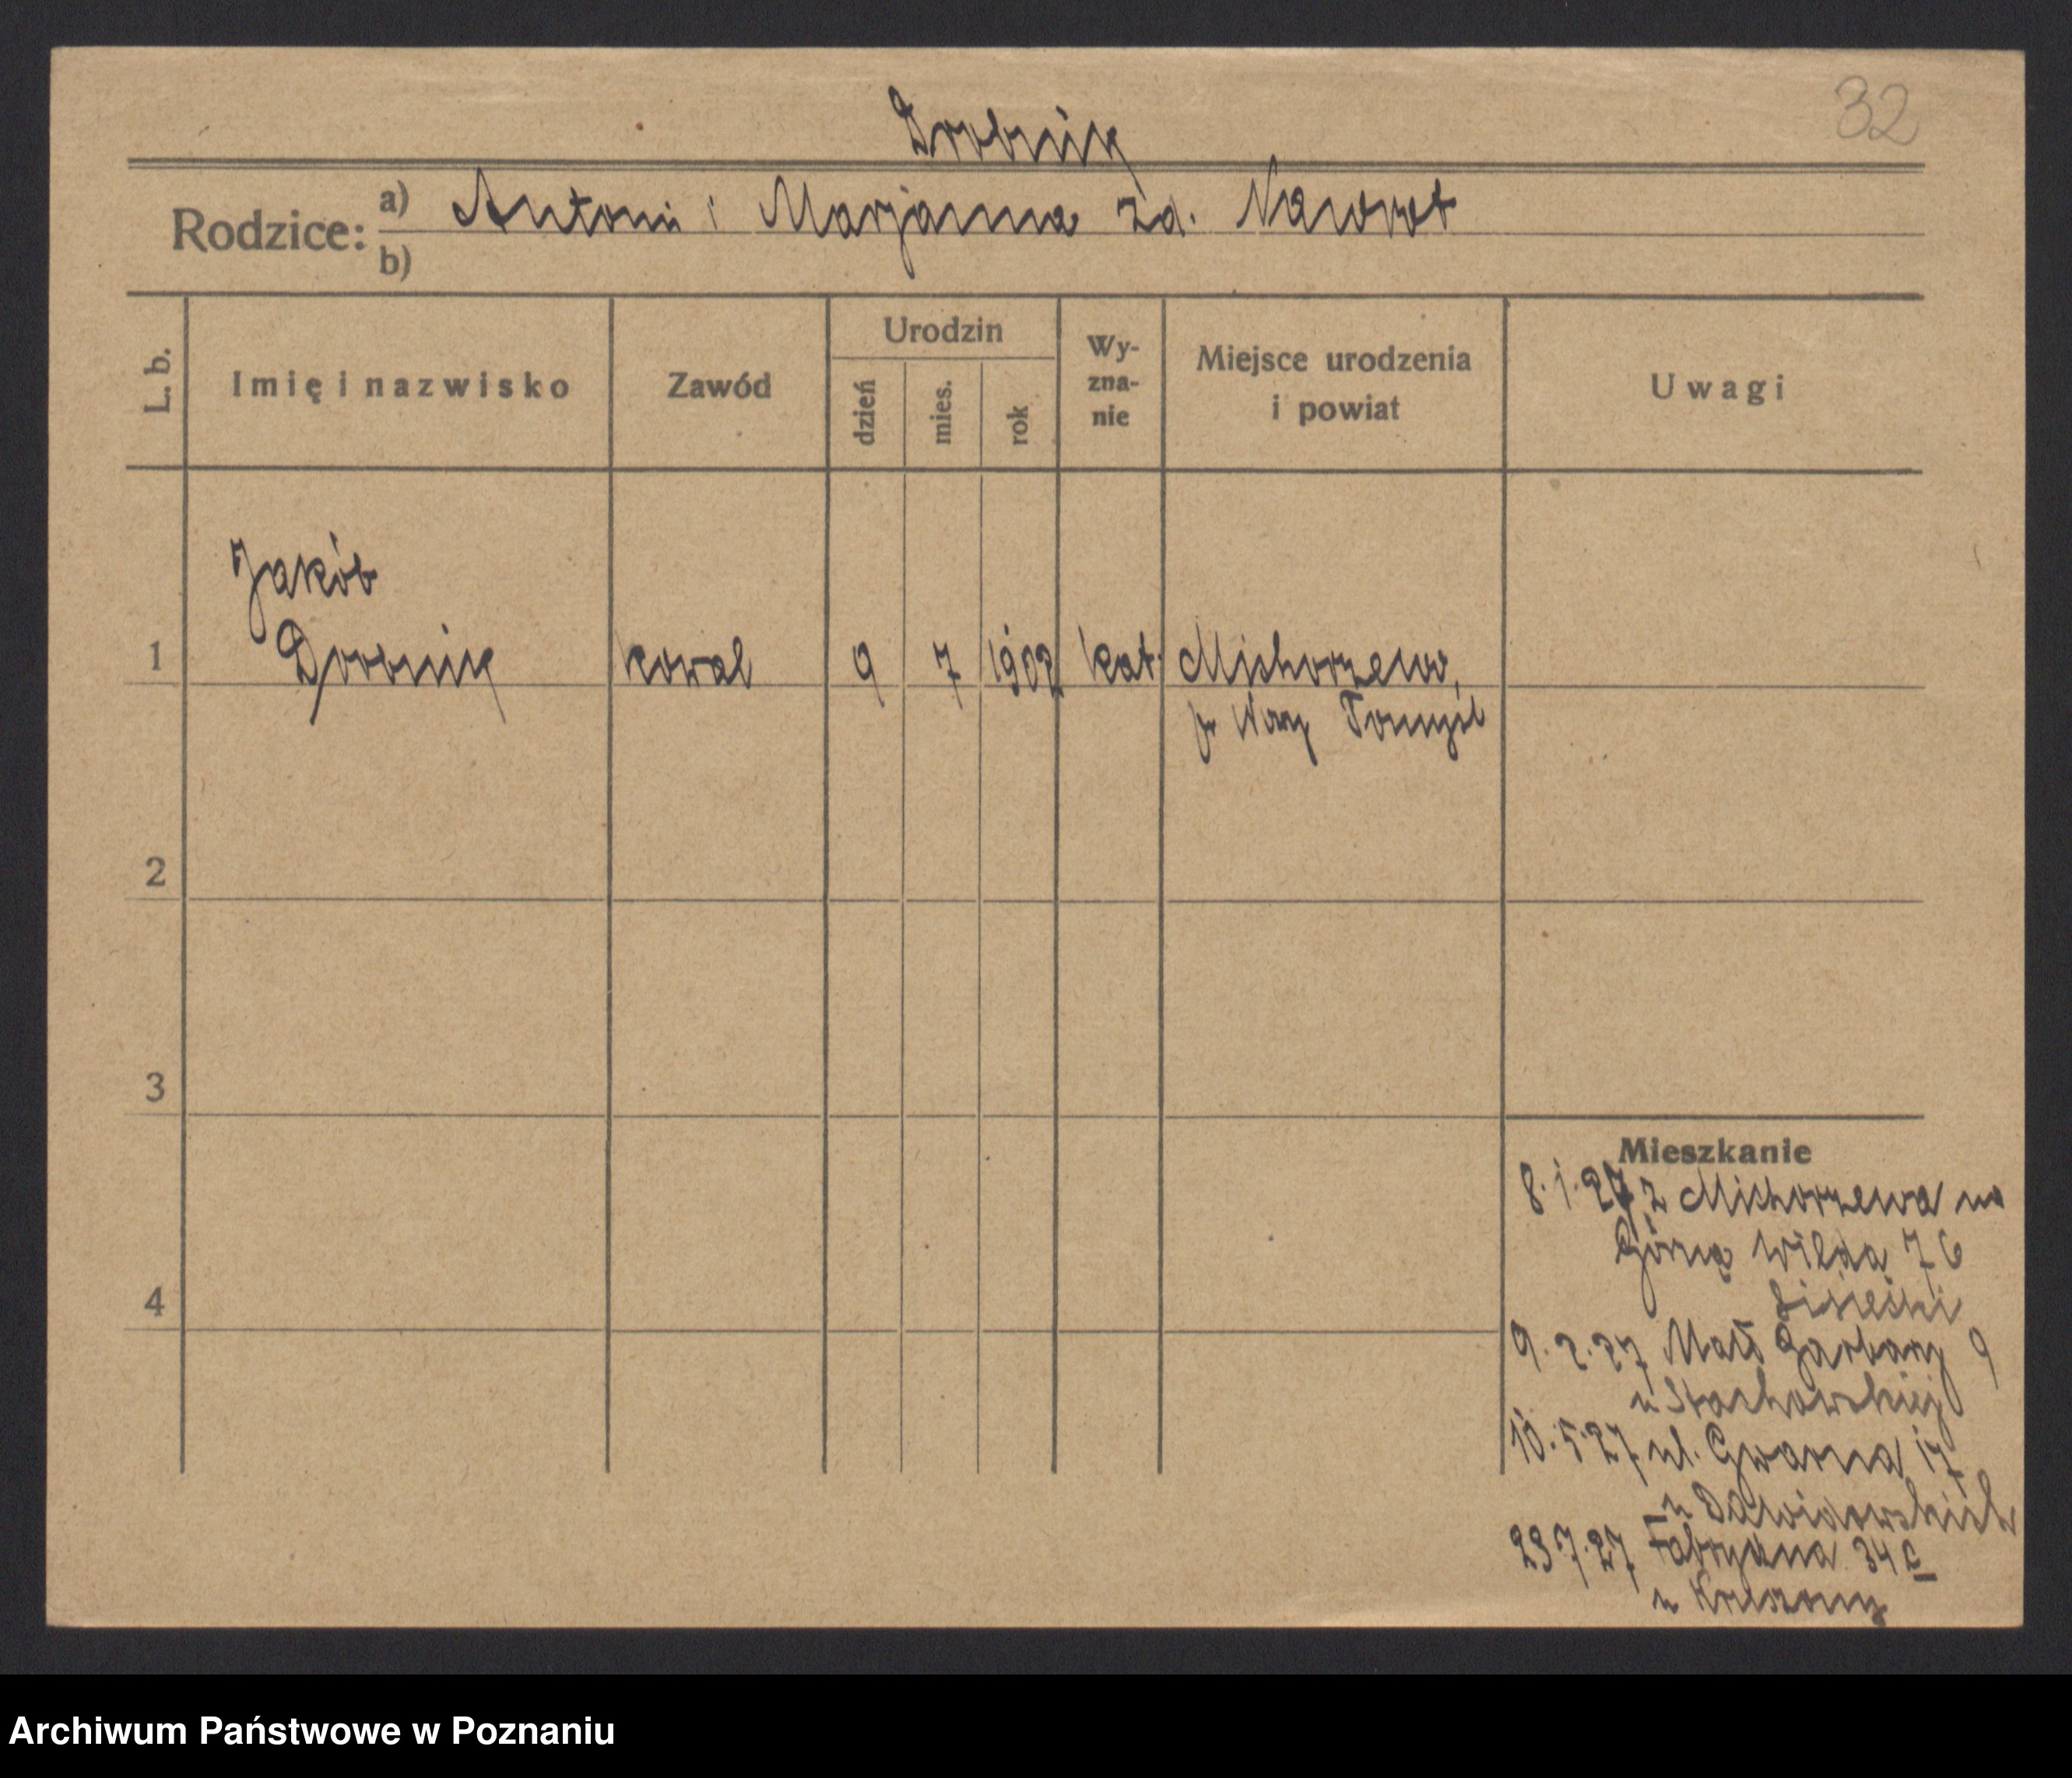 32
Drobnik
Rodzice: a) Antoni i Marjanna zd. Nawrot
b)
L. b.
Imię i nazwisko
Zawód
Urodzin
dzień
mies.
rok
Wy-
zna-
nie
Miejsce urodzenia
i powiat
Uwagi
Jakób
1 Drobnik kowal 9 7 1902 kat. Michorzewo,
p. Nowy Tomyśl
2
3
4
Mieszkanie
8.1.27 z Michorzewa na
Górną Wildą 76
9.2.27 Małe Garbary 9
u Stachowskiej
10.5.27 ul. Gwarna 17
u Dawidowskich
23.7.27 Fabryczna 34
u
Archiwum Państwowe w Poznaniu